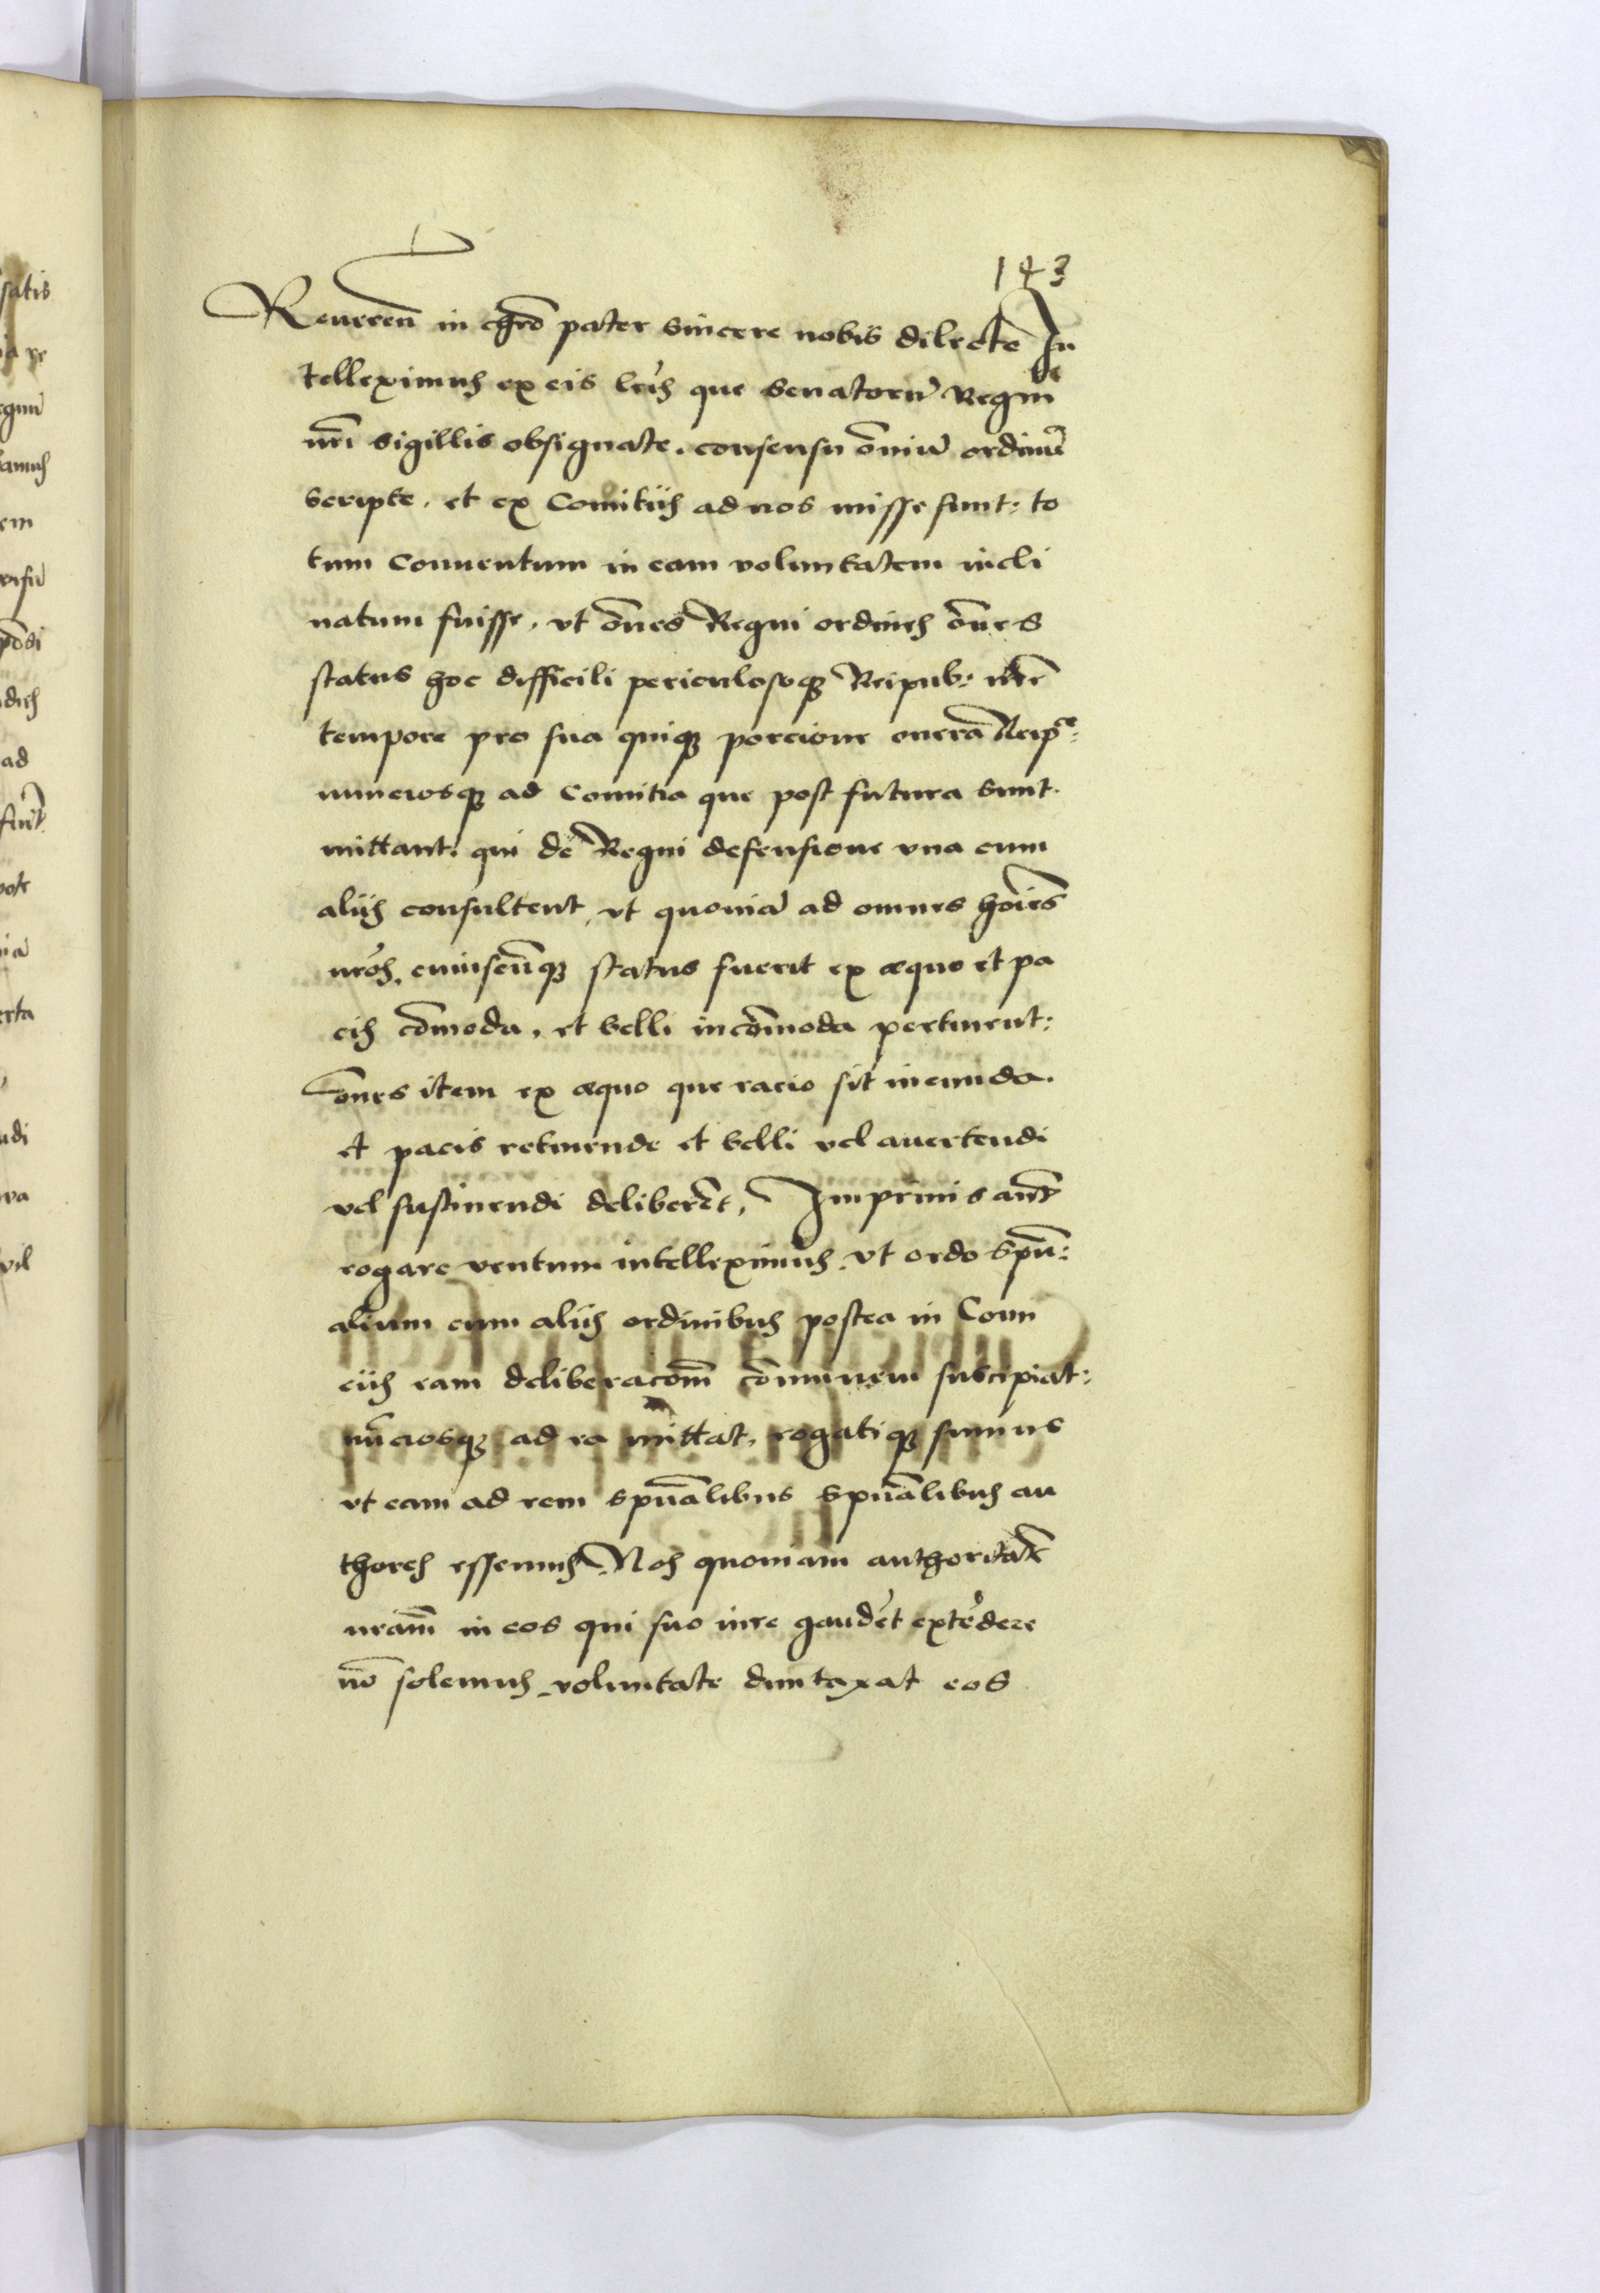 143
Reueren̄ in chr̄o pater sincere nobis dilecte In
telleximus ex eis lr̄is que senatorū Regni
nr̄i sigillis obsignate. consensu om̄iū ordinū
scripte. et ex Comitiis ad nos misse sunt: to
tum Conuentum in eam voluntatem incli
natum fuisse. vt om̄es Regni ordines om̄es
status hoc difficili periculosoq; Reipub: nr̄e
tempore pro sua quisq; porcione onera Reip:
nunciosq; ad Comitia que post futura sunt.
mittant. qui de Regni defensione vna cum
aliis consultent, vt quoniā ad omnes hoīes
nr̄os. cuiuscūq; status fuerit ex aequo et pa
cis com̄oda, et belli incom̄oda pertinent:
om̄es item ex aequo que racio sit ineunda.
et pacis retinende et belli vel auertendi
vel sustinendi deliberēt, Imprimis aūt
rogare ventum intelleximus. vt ordo spūa:
alium cum aliis ordinibus postea in Conu
ciis eam deliberacōm com̄unem suscipiat:
nūciosq; ad ea mittat, rogatiq; sumus
vt eam ad rem spūalibus spūalibus au
thores essemus. Nos quoniam authoritatē
nr̄am in eos qui suo iure gaudēt extēdere
nō solemus, voluntate duntaxat eos
satis
em
ad
erta